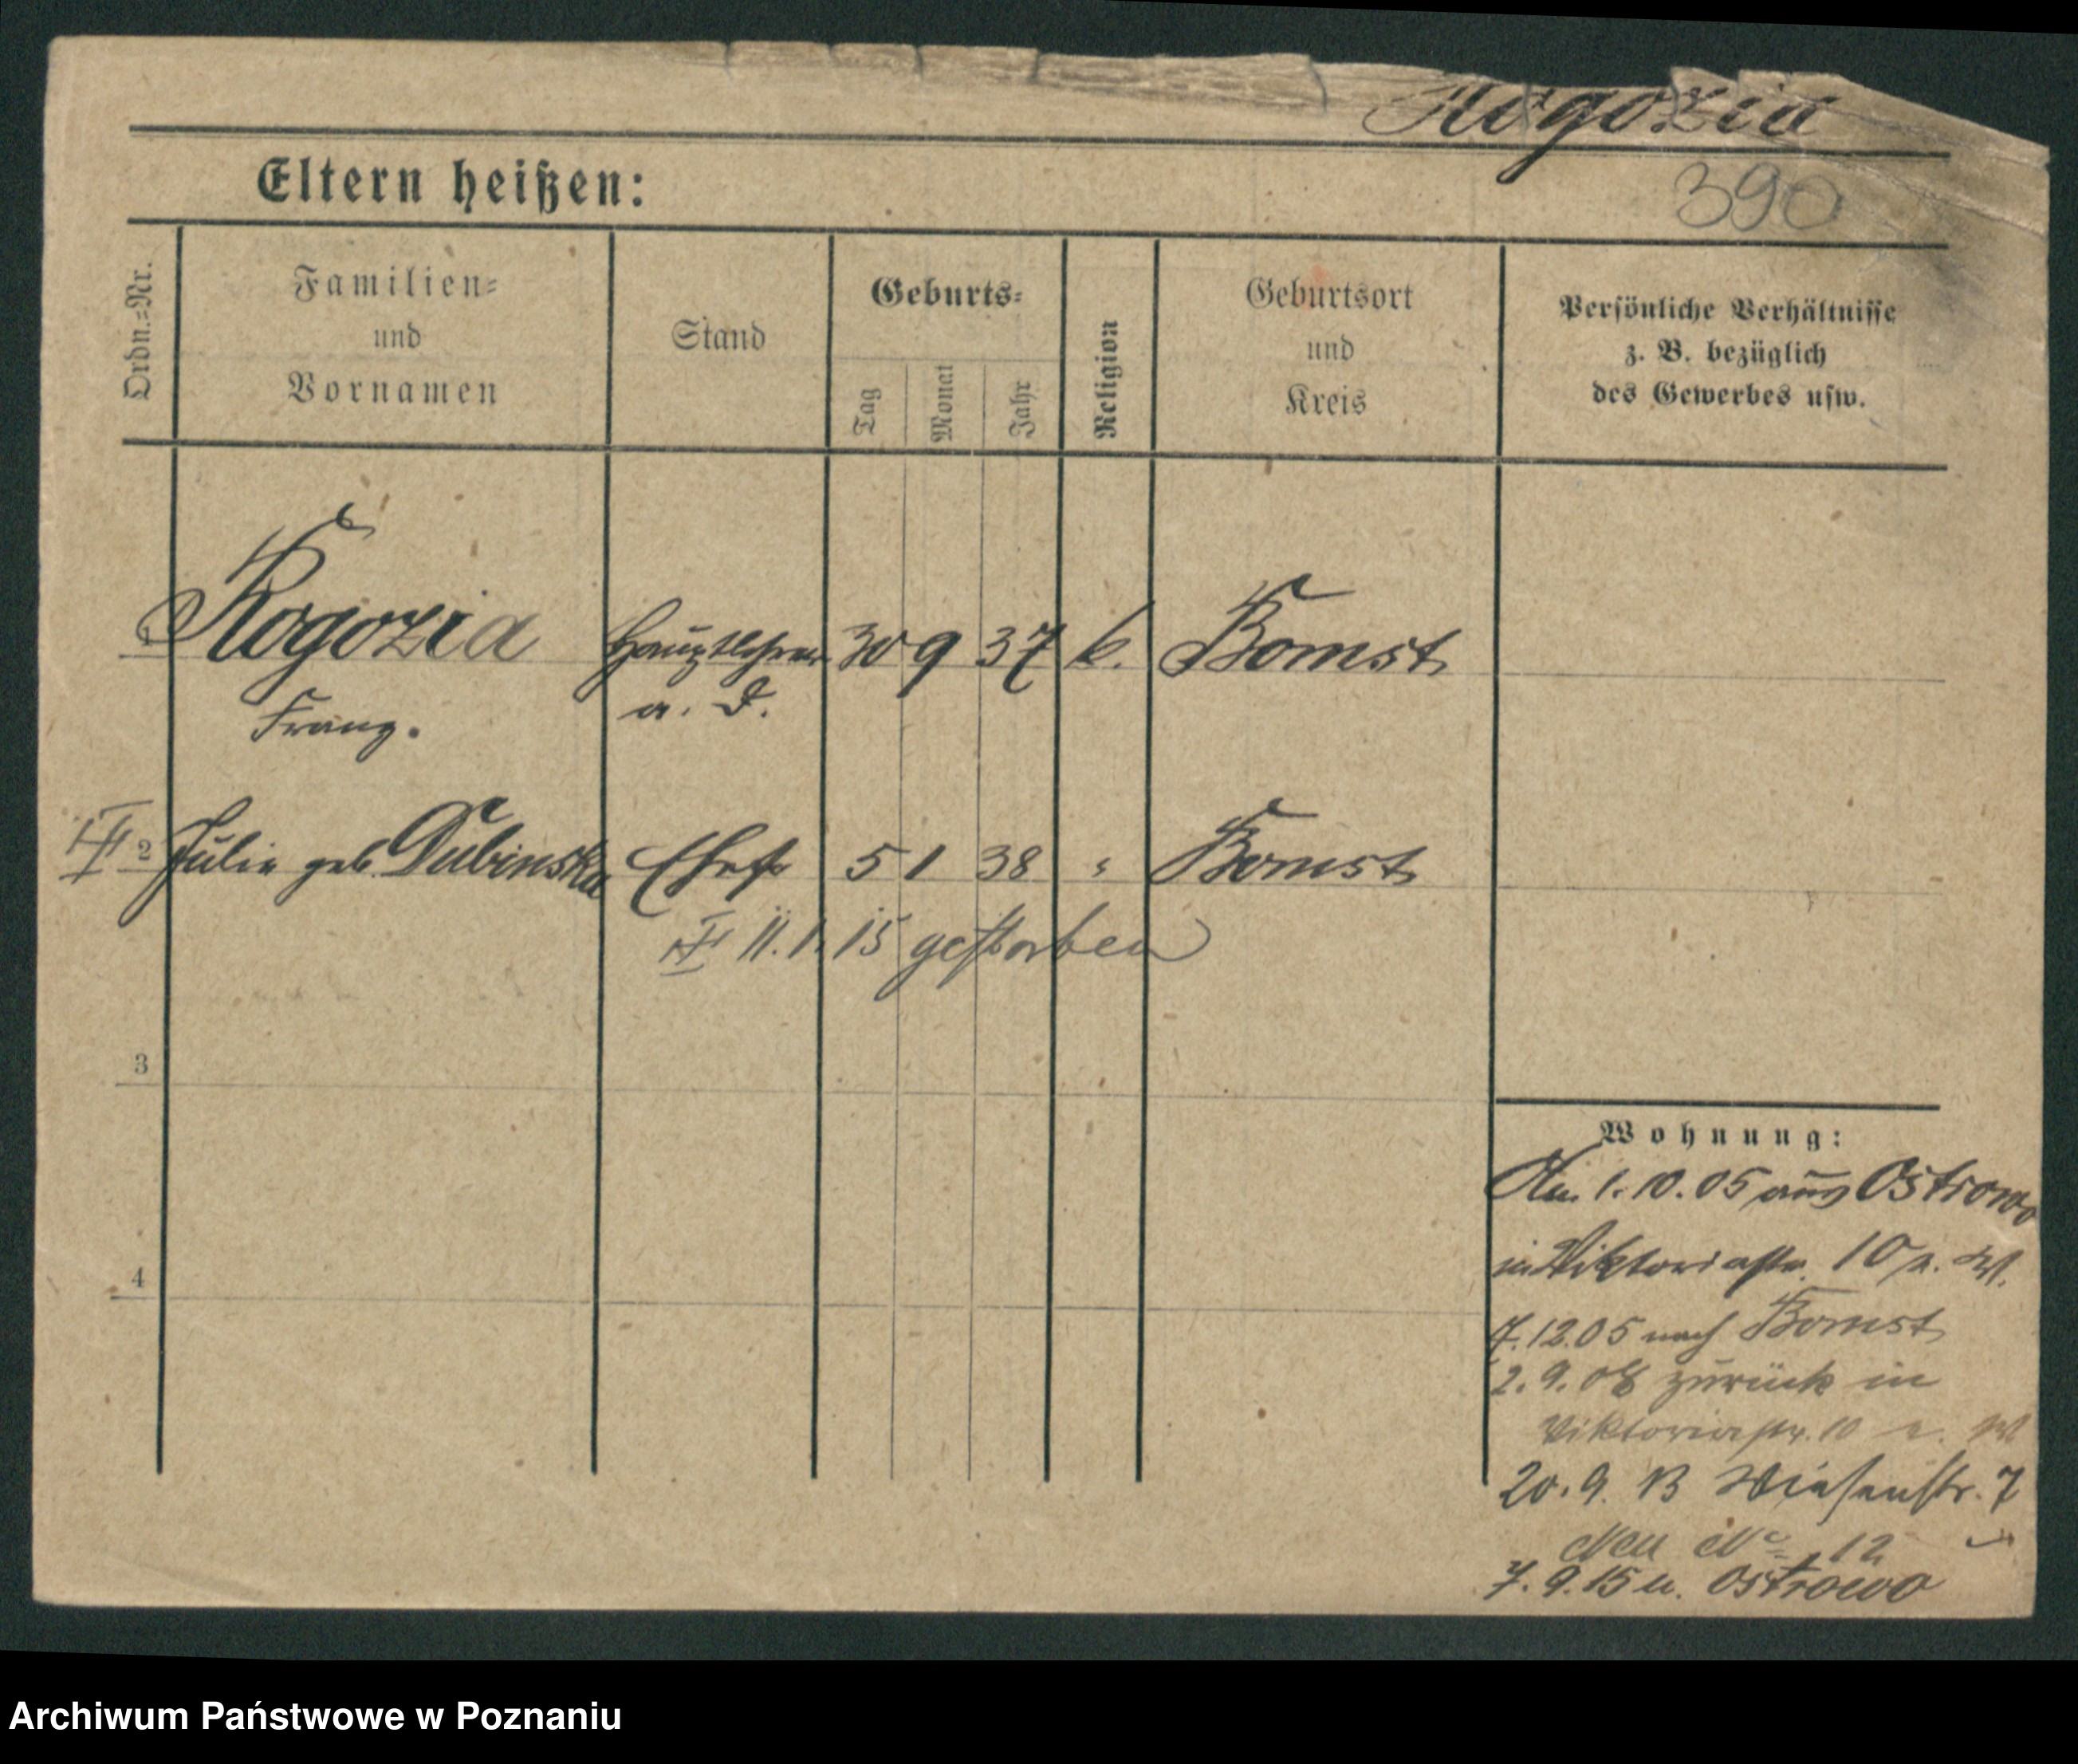 Rogozia
390
Eltern heißen:
Ordn.=Nr.
Familien=
und
Vornamen
Stand
Geburts=
Tag
Monat
Jahr
Religion
Geburtsort
und
Kreis
Persönliche Verhältnisse
z. B. bezüglich
des Gewerbes usw.
1 Rogozia Hauptlehrer 30 9 37 k. Bomst
Franz. a. D.
2 Julie geb. Dubinska Ehefr 5 1 38 " Bomst
11. 1. 15 gestorben
3
4
Wohnung:
1. 10. 05 aus Ostrowo
in Viktoriastr. 10 
7. 12. 05 nach Bomst
2. 9. 08 zurück in
Viktoriastr. 10
20. 9. 13 Wiesenstr. 7
Neu No 12
7. 9. 15 n. Ostrowo
Archiwum Państwowe w Poznaniu